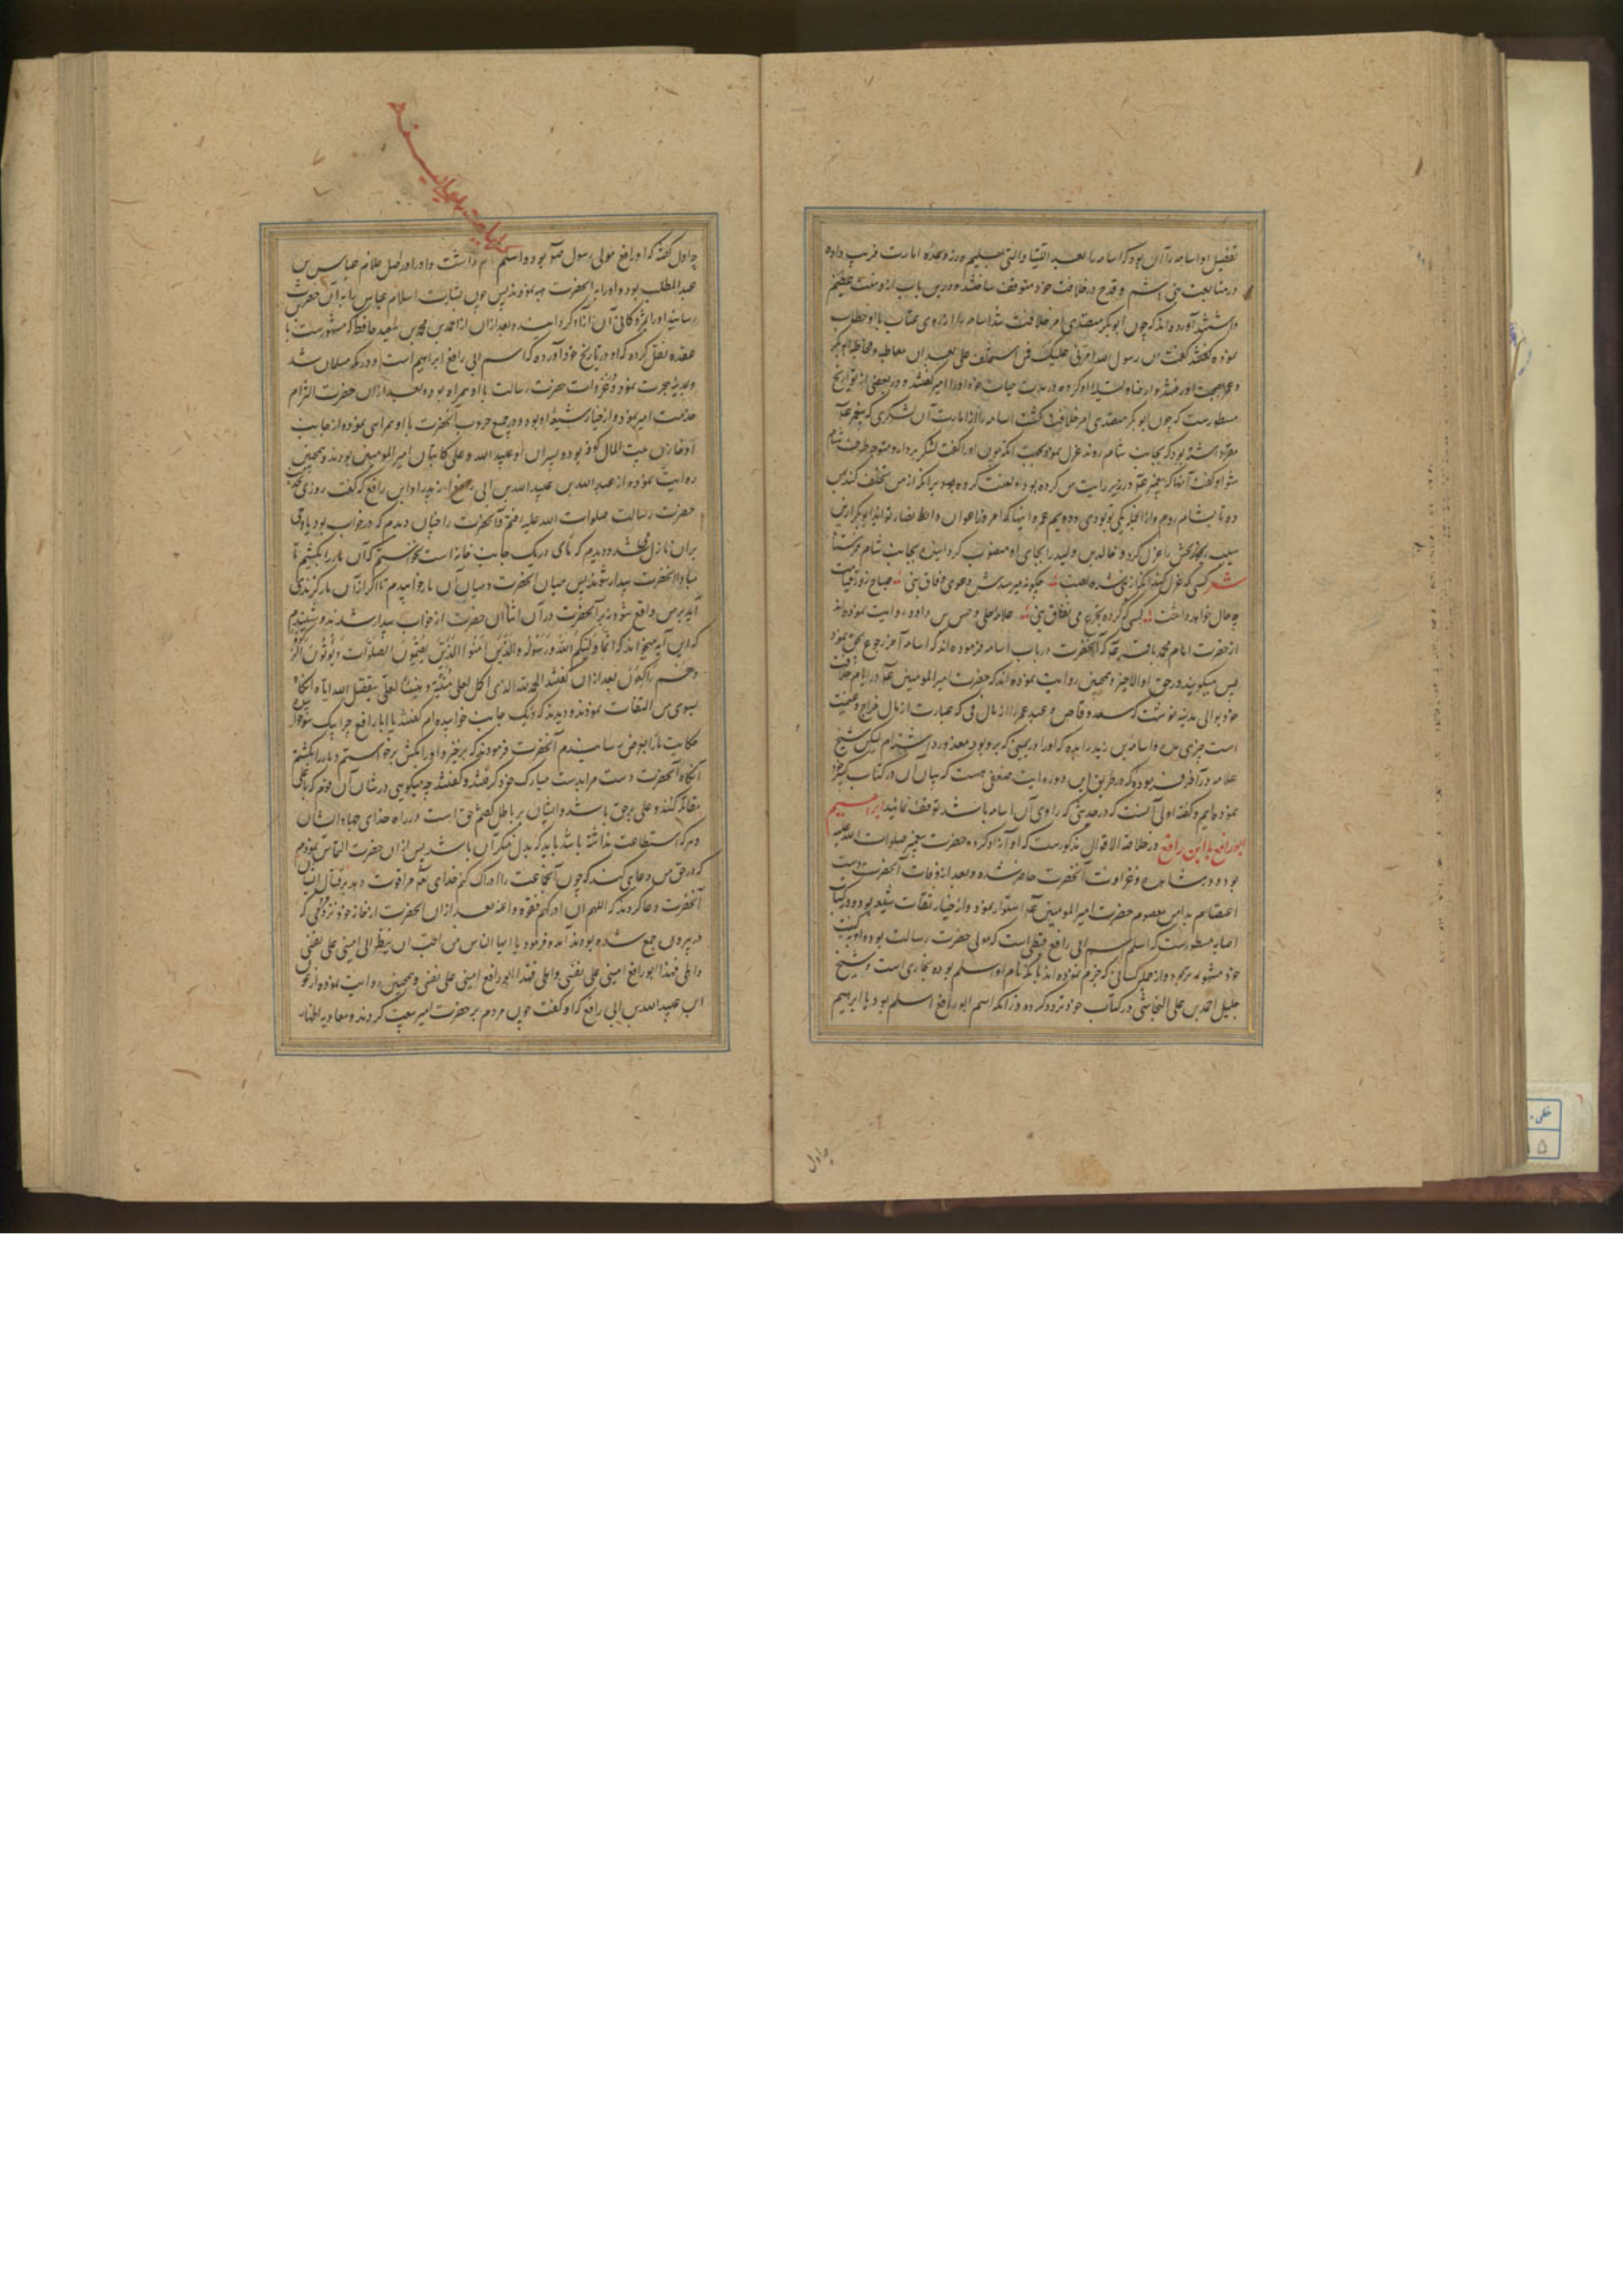 تفضیل او اسامه را آن بود که اسامه را بعد
در متابعت بنی هاشم و قدح در خلافت خود متوقف ساختند و درین باب ازو منت عظیم
داشتند آورده اند که چون ابو بکر متصدی امر خلافت شد اسامه را از روی عتاب با او خطاب
نموده گفت ان رسول الله امرنی علیک فمن استخلفک علی بعد از آن معاطبه و مخاطبه ابو بکر
او را امیر گفتند و در بعضی از تواریخ
مسطورست که چون ابو بکر متصدی امر خلافت گشت اسامه را از امارت آن لشکری که پیغمبر
مقرر داشته بود که بجانب شام روند عزل نمود او را گفت لشکر بردار و متوجه طرف شام
شو او گفت آنها که پیغمبر در زیر رایت من کرده بود و لعنت کرده بود بر آنکه از من تخلف کند
ده تا بشام روم و از آنجمله یکی تو بودی
عزل کرد و خالد بن ولید را بجای او منصوب گردانیده بجانب شام فرستاد
شعر کسی که عزل کند صباح روز قیامت
چه حال خواهد داشت کسی که کرده علامه حلی و حسن بن داود روایت نموده اند
از حضرت امام محمد باقر که آنحضرت در باب اسامه فرموده اند که اسامه آخر رجوع بحق نمود
پس مگویید در حق او الا خیر و همچنین روایت نموده اند که حضرت امیر المومنین در ایام خلافت
خود بوالی مدینه نوشت که سعد وقاص و عبد عمر را از مال فی که عبارت از مال خراج و غنیمت
است چیزی مده و اسامة بن زید را بده که او را در یمینی که برو بود معذور داشته ام لیکن شیخ
علامه در آخر فرموده که در طریق این دو روایت ضعفی هست که بیان آن در کتاب کبیر خود
نموده ایم و گفته اولی آنست که در حدیثی که راوی آن اسامه باشد توقف نمایند ابراهیم
ابو رافع یا ابن رافع در خلاصة الاقوال مذکورست که او آزاد کرده حضرت پیغمبر صلوات الله علیه
بود و در مشاهد و غزوات آنحضرت حاضر شده و بعد از وفات آنحضرت دست
اعتصام بدامن معصوم حضرت امیر المومنین استوار نمود و از خیار ثقات شیعه بود و در کتاب
اصابه مسطورست که اسلم اسم ابی رافع قبطی است که مولی حضرت رسالت بوده و او بکنیت
خود مشهورتر بود و از جمله کسانی که جزم نموده اند بآنکه نام او اسلم بوده بخاری است و شیخ
جلیل احمد بن علی النجاشی در کتاب خود تردد کرده در آنکه اسم ابو رافع اسلم بود یا ابراهیم
چه اول
چه اول گفته که ابو رافع مولی رسول بود و اسلم نام داشت و او در اصل غلام عباس بن
عبد المطلب بود و او را به آنحضرت هبه نمودند پس چون بشارت اسلام عباس را به آن حضرت
رسانید او را بمژدگانی آن آزاد گردانیدند و بعد از آن از احمد بن محمد بن سعید حافظ که مشهورست با
عقده نقل کرده که او در تاریخ خود آورده که اسم ابی رافع ابراهیم است و در مکه مسلمان شد
و بمدینه هجرت نمود و در غزوات حضرت رسالت با او همراه بود و بعد از آن حضرت التزام
خدمت امیر نمود و از خیار شیعه او بود و در جمیع حروب آنحضرت با او همراهی نموده از جانب
او خازن بیت المال کوفه بود و پسران او عبید الله و علی کاتبان امیر المومنین بودند و همچنین
روایت نموده از عبد الله بن عبید الله بن ابی رافع از پدر او ابن رافع که گفت روزی
حضرت رسالت صلوات الله علیه رفتم و آنحضرت را چنان دیدم که در خواب بود یا وحی
بران نازل میشد و دیدم که ماری در یک جانب خانه است نخواستم که آن مار را بکشم تا
مبادا آنحضرت بیدار شوند پس میان آنحضرت و میان آن مار خوابیدم تا اگر از آن مار گزندی
آید بر من واقع شود نه بر آنحضرت در آن اثنا آن حضرت از خواب بیدار شدند و شنیدم
که این آیه میخواند که انما ولیکم الله و رسوله والذین آمنوا الذین یقیمون الصلوات و یؤتون الزکوة
وهم راکعون بعد از آن گفتند الحمد لله الذی اکمل لعلی منیته و هنیئا لعلی بتفضیل الله ایاه آنگاه
بسوی من التفات نمودند و دیدند که در یک جانب خوابیده ام گفتند یا ابا رافع چرا اینجا
حکایت مار را بعرض رسانیدم آنحضرت فرمودند که برخیز و او را بکش برخواستم و مار را بکشتم
آنگاه آنحضرت دست مرا بدست مبارک خود گرفتند و گفتند چه میگویی در شان آن قوم که با علی
مقاتله کنند و علی بر حق باشد و ایشان بر باطل حق است در راه خدای جهاد ایشان
و هر که استطاعت نداشته باشد باید که بدل منکر آن باشد پس از آن حضرت التماس نمودم
که در حق من دعایی کند که چون آنجماعت را ادراک کنم خدای مرا قوت دهد بر قتال ایشان
آنحضرت دعا کردند که اللهم ان ادرکهم فقوه و اعنه بعد از آن آنحضرت از خانه خود نزد مردمی که
در بیرون جمع شده بودند آمد و فرمود یا ایها الناس من احب ان ینظر الی امینی علی نفسی
و اهلی فهذا ابو رافع امینی علی نفسی و اهلی فهذا ابو رافع امینی علی نفسی و همچنین روایت نموده از عون
ابن عبید الله بن ابی رافع که او گفت چون مردم بر حضرت امیر بیعت کردند و معاویه اظهار